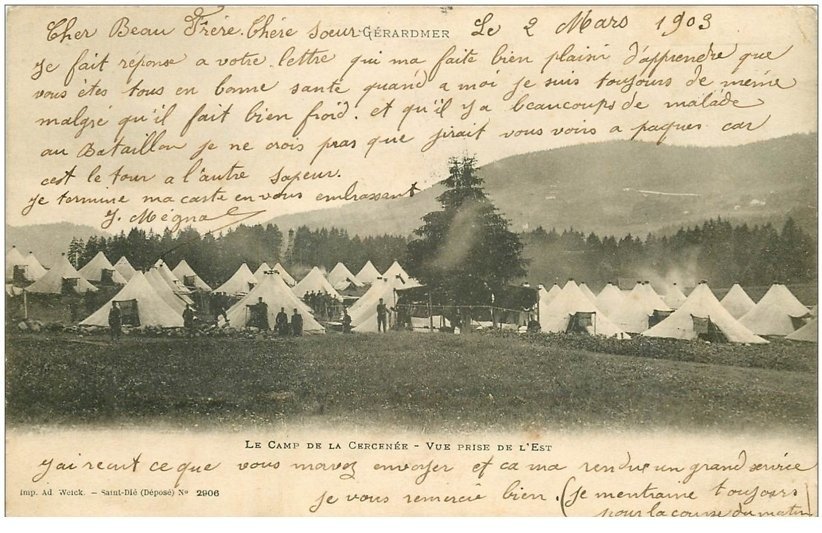 Cher Beau Frère. Chére soeur GÉRARDMER Le 2 Mars 1903
Je fait réponse a votre lettre qui ma faite bien plaisir d'apprendre que
vous êtes tous en bonne santé quand a moi je suis toujours de meme
malgré qu'il fait bien froid. et qu'il y a beaucoups de malade
au Bataillon je ne crois pas que jirait vous vois a paques car
c'est le tour a l'autre sapeur.
Je termine ma carte en vous embrassant
J. Mégna
LE CAMP DE LA CERCENÉE - VUE PRISE DE L'EST
j'ai recut ce que vous mavez envoyer et ca ma rendu un grand service
Imp. Ad. Weick. - Saint-Dié (Déposé) No 2906
je vous remercie bien. (je mentraine toujours
pour la course du matin